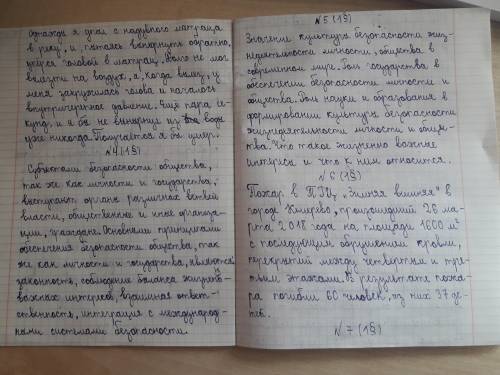 Однажды я упал с надувного матраца
в реку, и, пытаясь вынырнуть обратно,
упёрся головой в матрац. Долго не мог
вылезти на воздух, а, когда вылез, у
меня закружилась голова и началось
внутричерепное давление. Ещё пара се-
кунд, и я бы не вынырнул из воды
уже никогда. Получается я бы умер.
№4 (1§)
Субъектами безопасности общества,
так же как личности и государства,
выступают органы различных ветвей
власти, общественные и иные организа-
ции, граждане. Основными принципами
обеспечения безопасности общества, так
же как личности и государства, являются
законность, соблюдение баланса жизненно-
важных интересов, взаимная ответ-
ственность, интеграция с международ-
ными системами безопасности.
№5 (1§)
Значение культуры безопасности жиз-
недеятельности личности, общества в
современном мире. Роль государства в
обеспечении безопасности личности и
общества. Роль науки и образования в
формировании культуры безопасности
жизнедеятельности личности и общес-
тва. Что такое жизненно важные
интересы и что к ним относится.
№6 (1§)
Пожар в ТРЦ "Зимняя вишня" в
городе Кемерово, произошедший 26 ма-
рта 2018 года на площади 1600 м²
с последующим обрушением кровли,
перекрытий между четвёртым и тре-
тьим этажами. В результате пожа-
ра погибли 60 человек, из них 37 де-
тей.
№7 (1§)